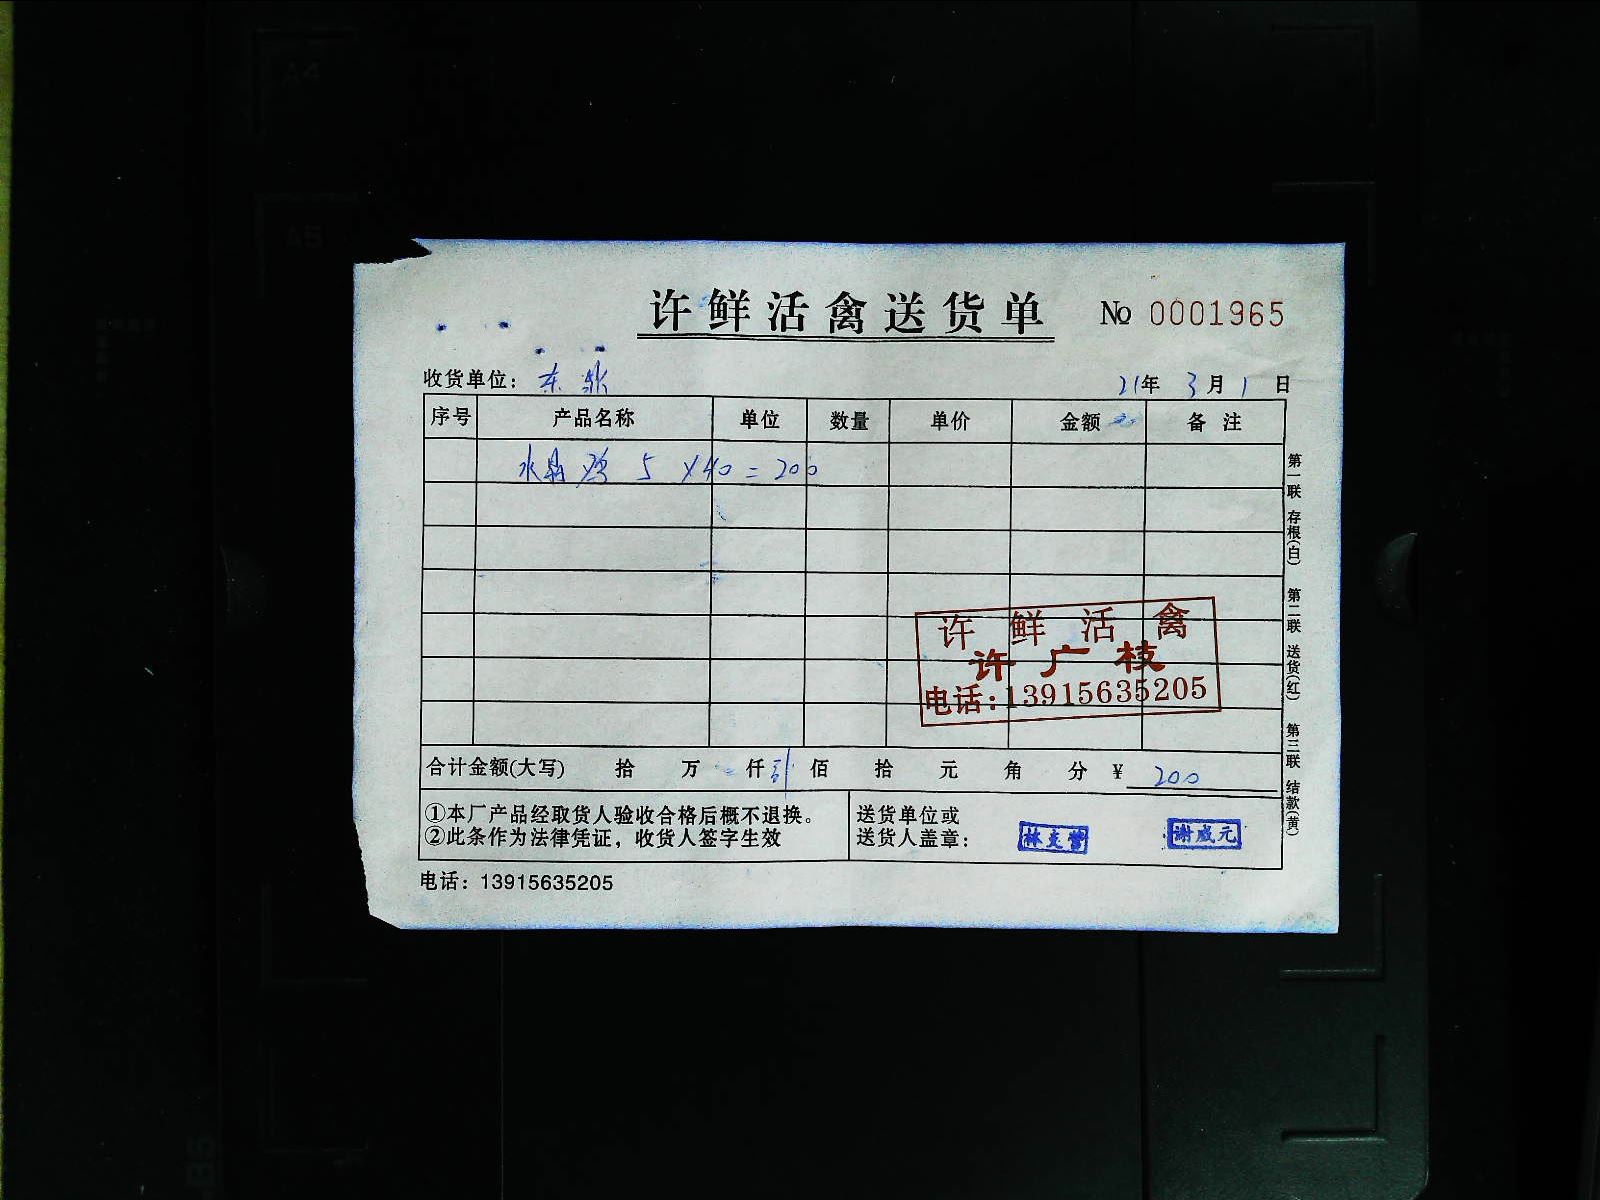 许鲜活禽送货单 № 0001965
收货单位： 东
21年 3月 1日
序号 产品名称 单位 数量 单价 金额 备 注
水晶鸡 5 ×40 = 200
许鲜活禽
许广枝
电话:13915635205
合计金额(大写) 拾 万 仟 贰 佰 拾 元 角 分 ¥ 200
①本厂产品经取货人验收合格后概不退换。
②此条作为法律凭证，收货人签字生效
送货单位或
送货人盖章：
谢成元
电话：13915635205
第一联 存根(白) 第二联 送货(红) 第三联 结款(黄)
A4
A5
B5